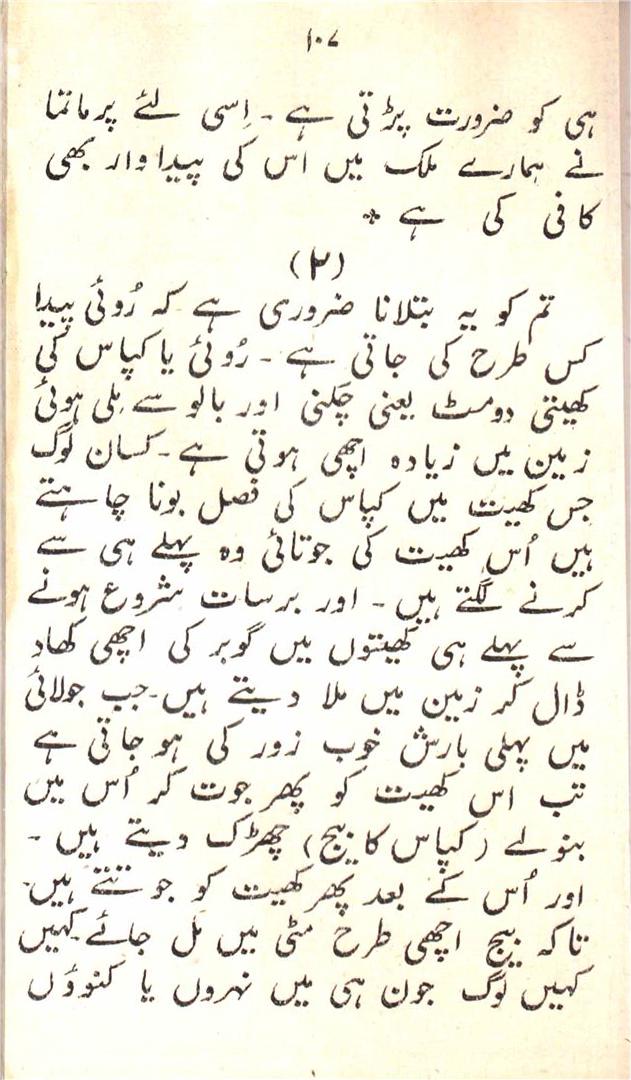 ۱۰۷
ہی کو ضرورت پڑتی ہے ۔ اِسی لئے پرماتما
نے ہمارے ملک میں اس کی پیداوار بھی
کافی کی ہے *
(۲)
تم کو یہ بتلانا ضروری ہے کہ رُوئی پیدا
کس طرح کی جاتی ہے ۔ رُوئی یا کپاس کی
کھیتی دومٹ یعنی چکنی اور بالو سے مِلی ہوئی
زمین میں زیادہ اچھی ہوتی ہے ۔ کسان لوگ
جس کھیت میں کپاس کی فصل بونا چاہتے
ہیں اُس کھیت کی جوتائی وہ پہلے ہی سے
کرنے لگتے ہیں ۔ اور برسات شروع ہونے
سے پہلے ہی کھیتوں میں گوبر کی اچھی کھاد
ڈال کر زمین میں ملا دیتے ہیں ۔ جب جولائی
میں پہلی بارش خوب زور کی ہو جاتی ہے
تب اس کھیت کو پھر جوت کر اُس میں
بنولے (کپاس کا بیج) چھڑک دیتے ہیں ۔
اور اُس کے بعد پھر کھیت کو جوتتے ہیں ۔
تاکہ بیج اچھی طرح مٹی میں مل جائے ۔ کہیں
کہیں لوگ جون ہی میں نہروں یا کنوؤں